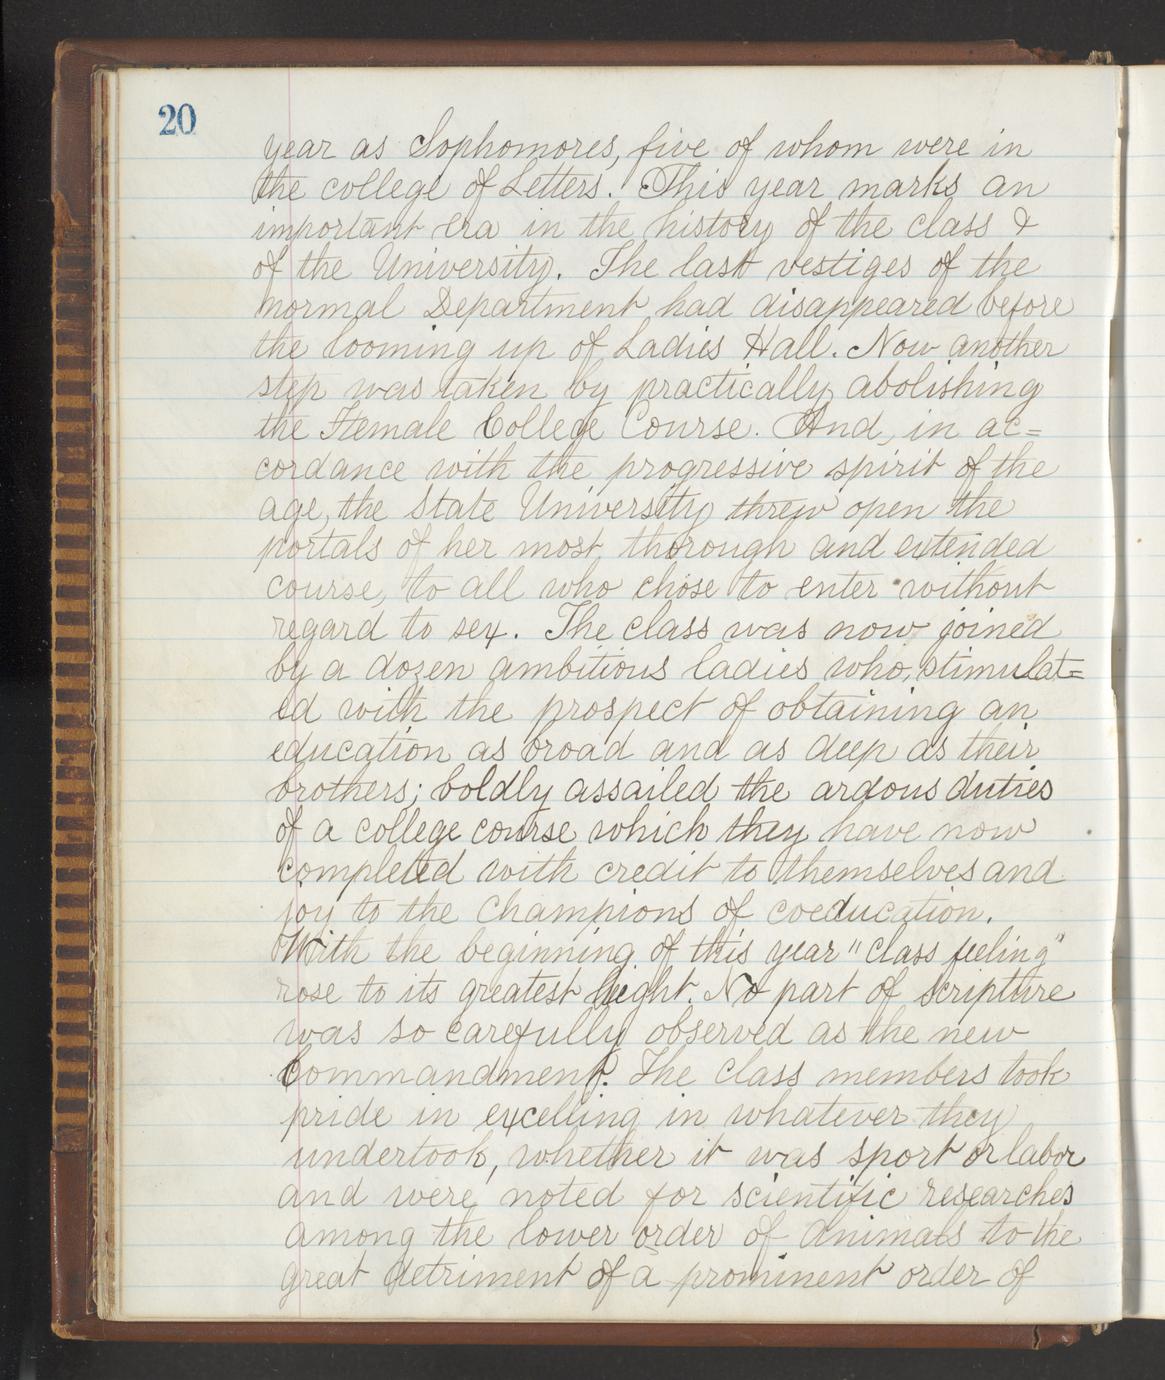 20
year as Sophomores, five of whom were in
the college of Letters. This year marks an
important era in the history of the class &
of the University. The last vestiges of the
normal Department had disappeared before
the looming up of Ladies Hall. Now another
step was taken by practically abolishing
the Female College Course. And, in ac=
cordance with the progressive spirit of the
age, the State University threw open the
portals of her most thorough and extended
course, to all who chose to enter without
regard to sex. The class was now joined
by a dozen ambitious ladies who, stimulat=
ed with the prospect of obtaining an
education as broad and as deep as their
brothers; boldly assailed the ardous duties
of a college course which they have now
completed with credit to themselves and
joy to the champions of coeducation.
With the beginning of this year "class feeling"
rose to its greatest hight. No part of scripture
was so carefully observed as the new
Commandment. The class members took
pride in excelling in whatever they
undertook, whether it was sport or labor
and were noted for scientific researches
among the lower order of animals to the
great detriment of a prominent order of